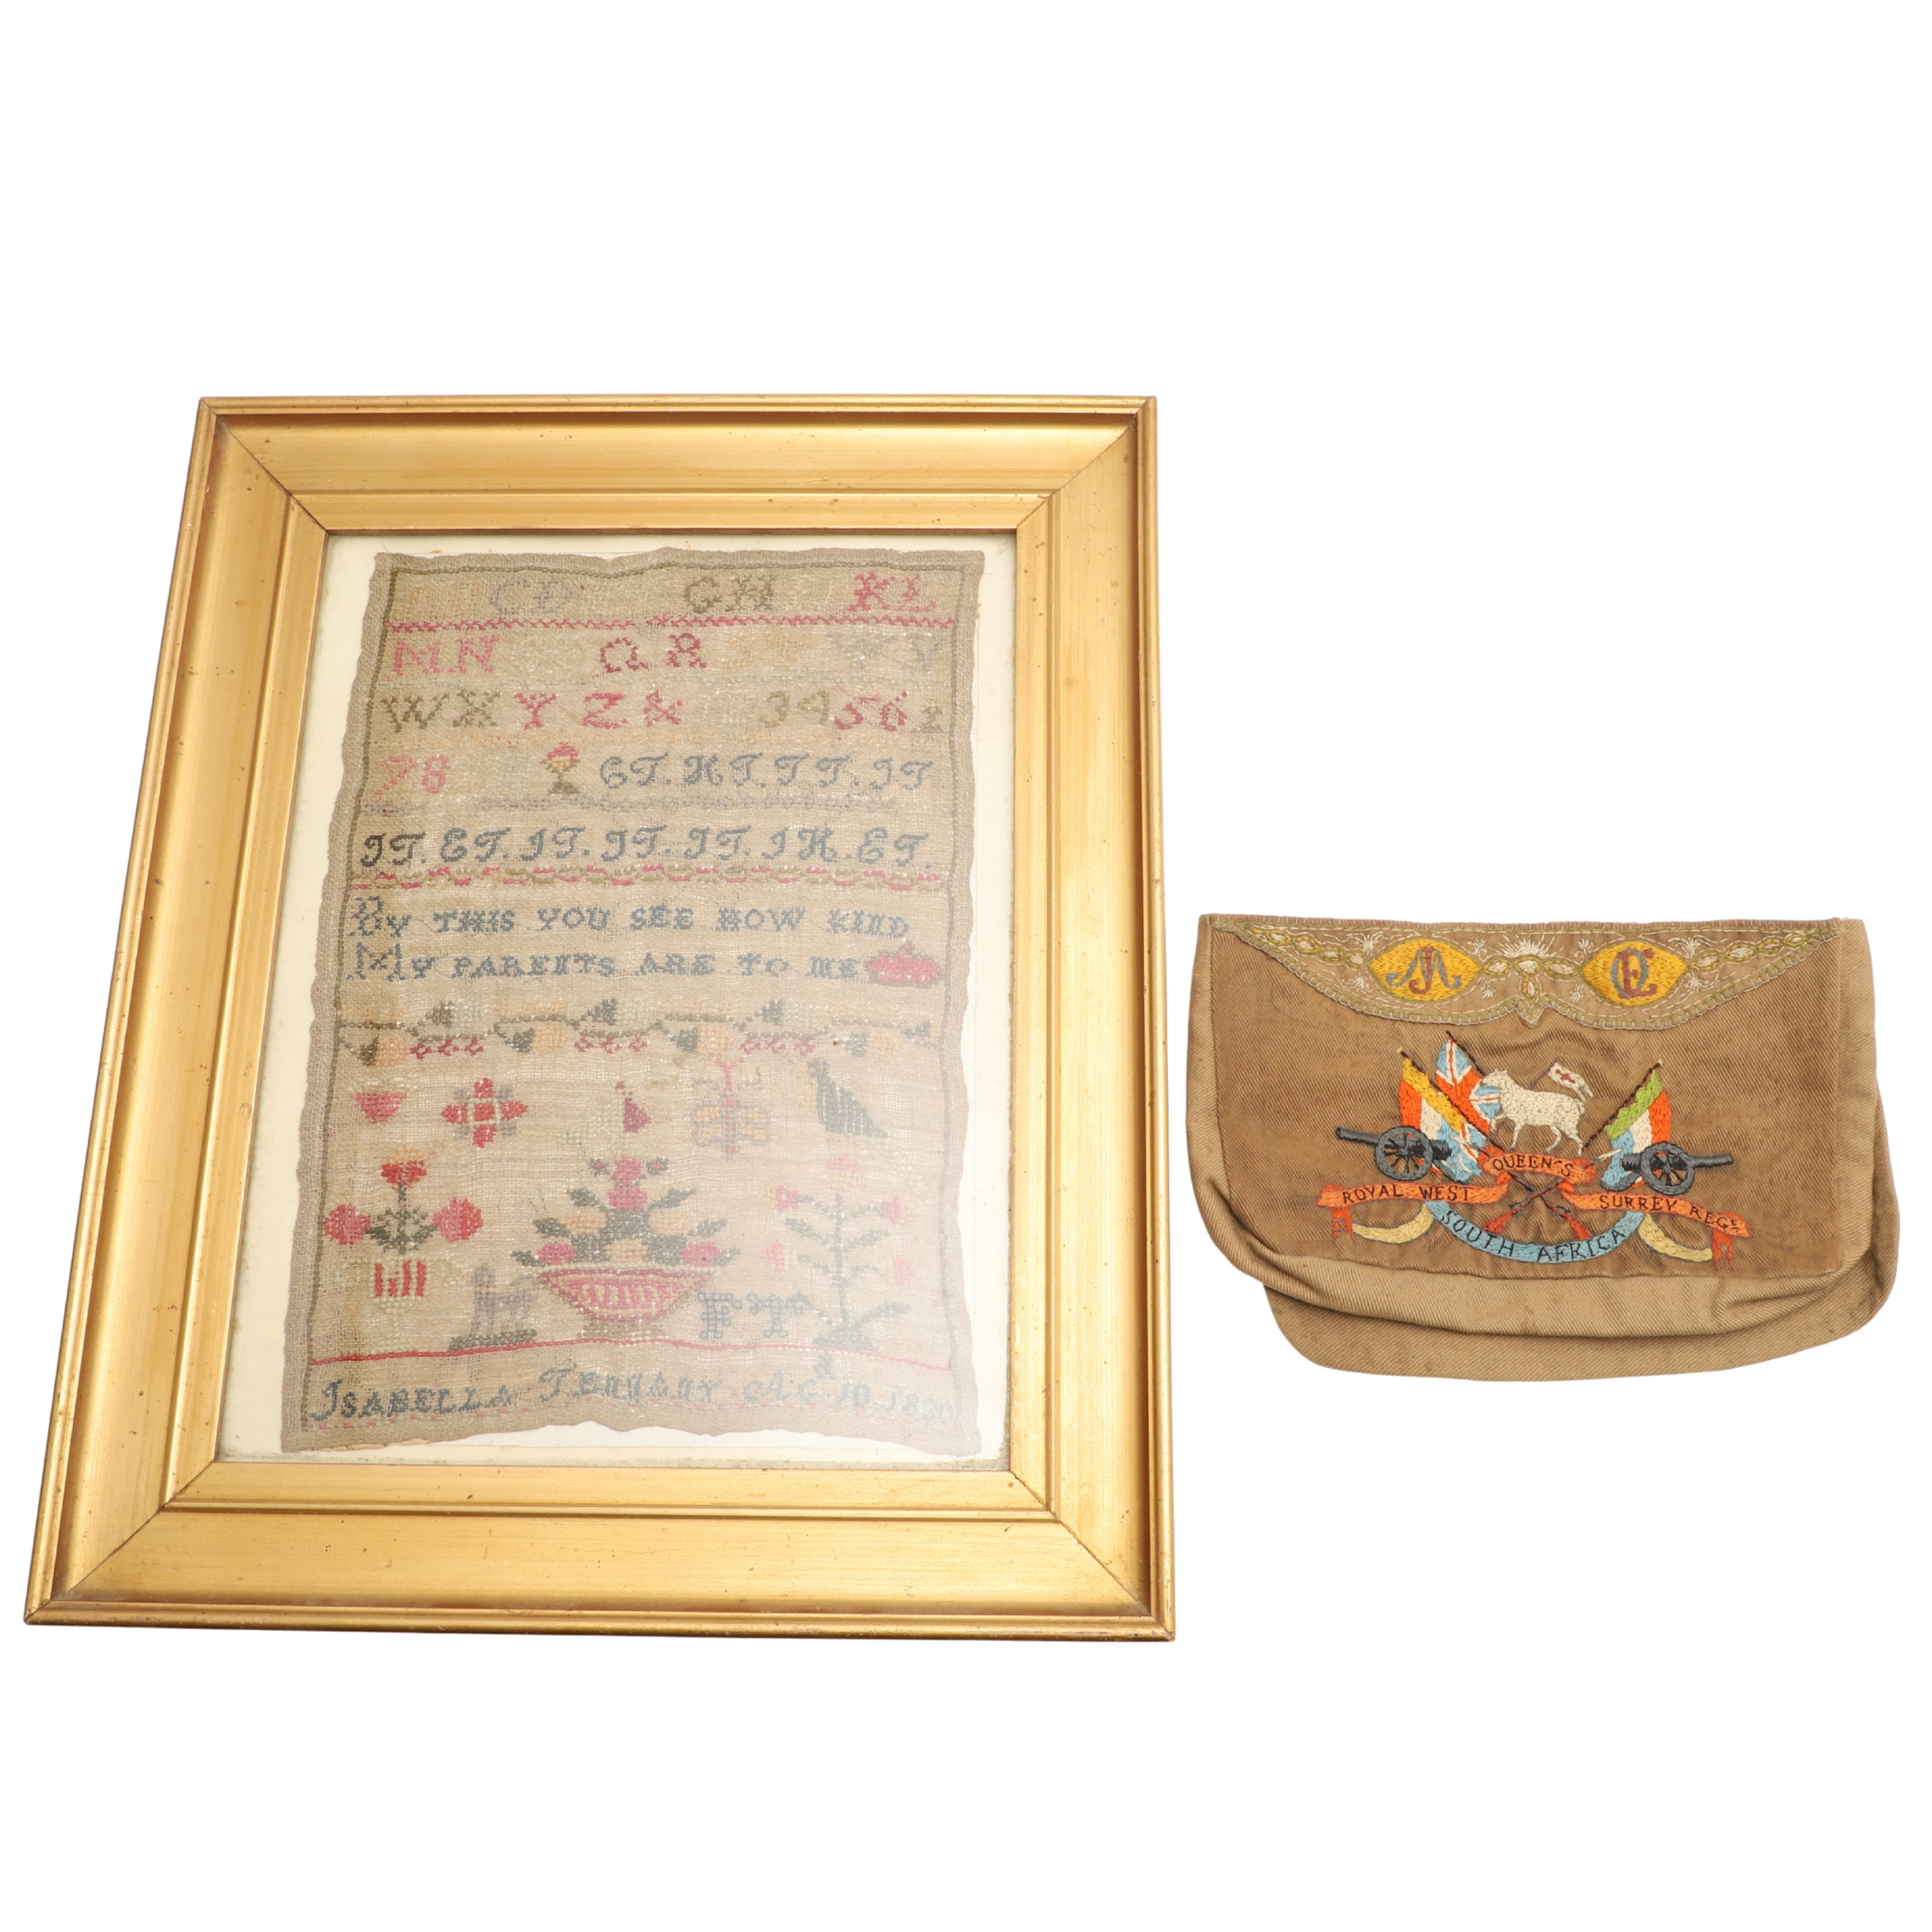 CD GH KL
MN QR V
WXYZ& 3456
78 GT.HT.TT.JT
JT.ET.JT.JT.JT.JH.ET.
By THIS YOU SEE HOW KIND
My PARENTS ARE TO ME
ISABELLA TENNANT AGD 10 183
QUEEN'S
ROYAL WEST SURREY REGT
SOUTH AFRICA